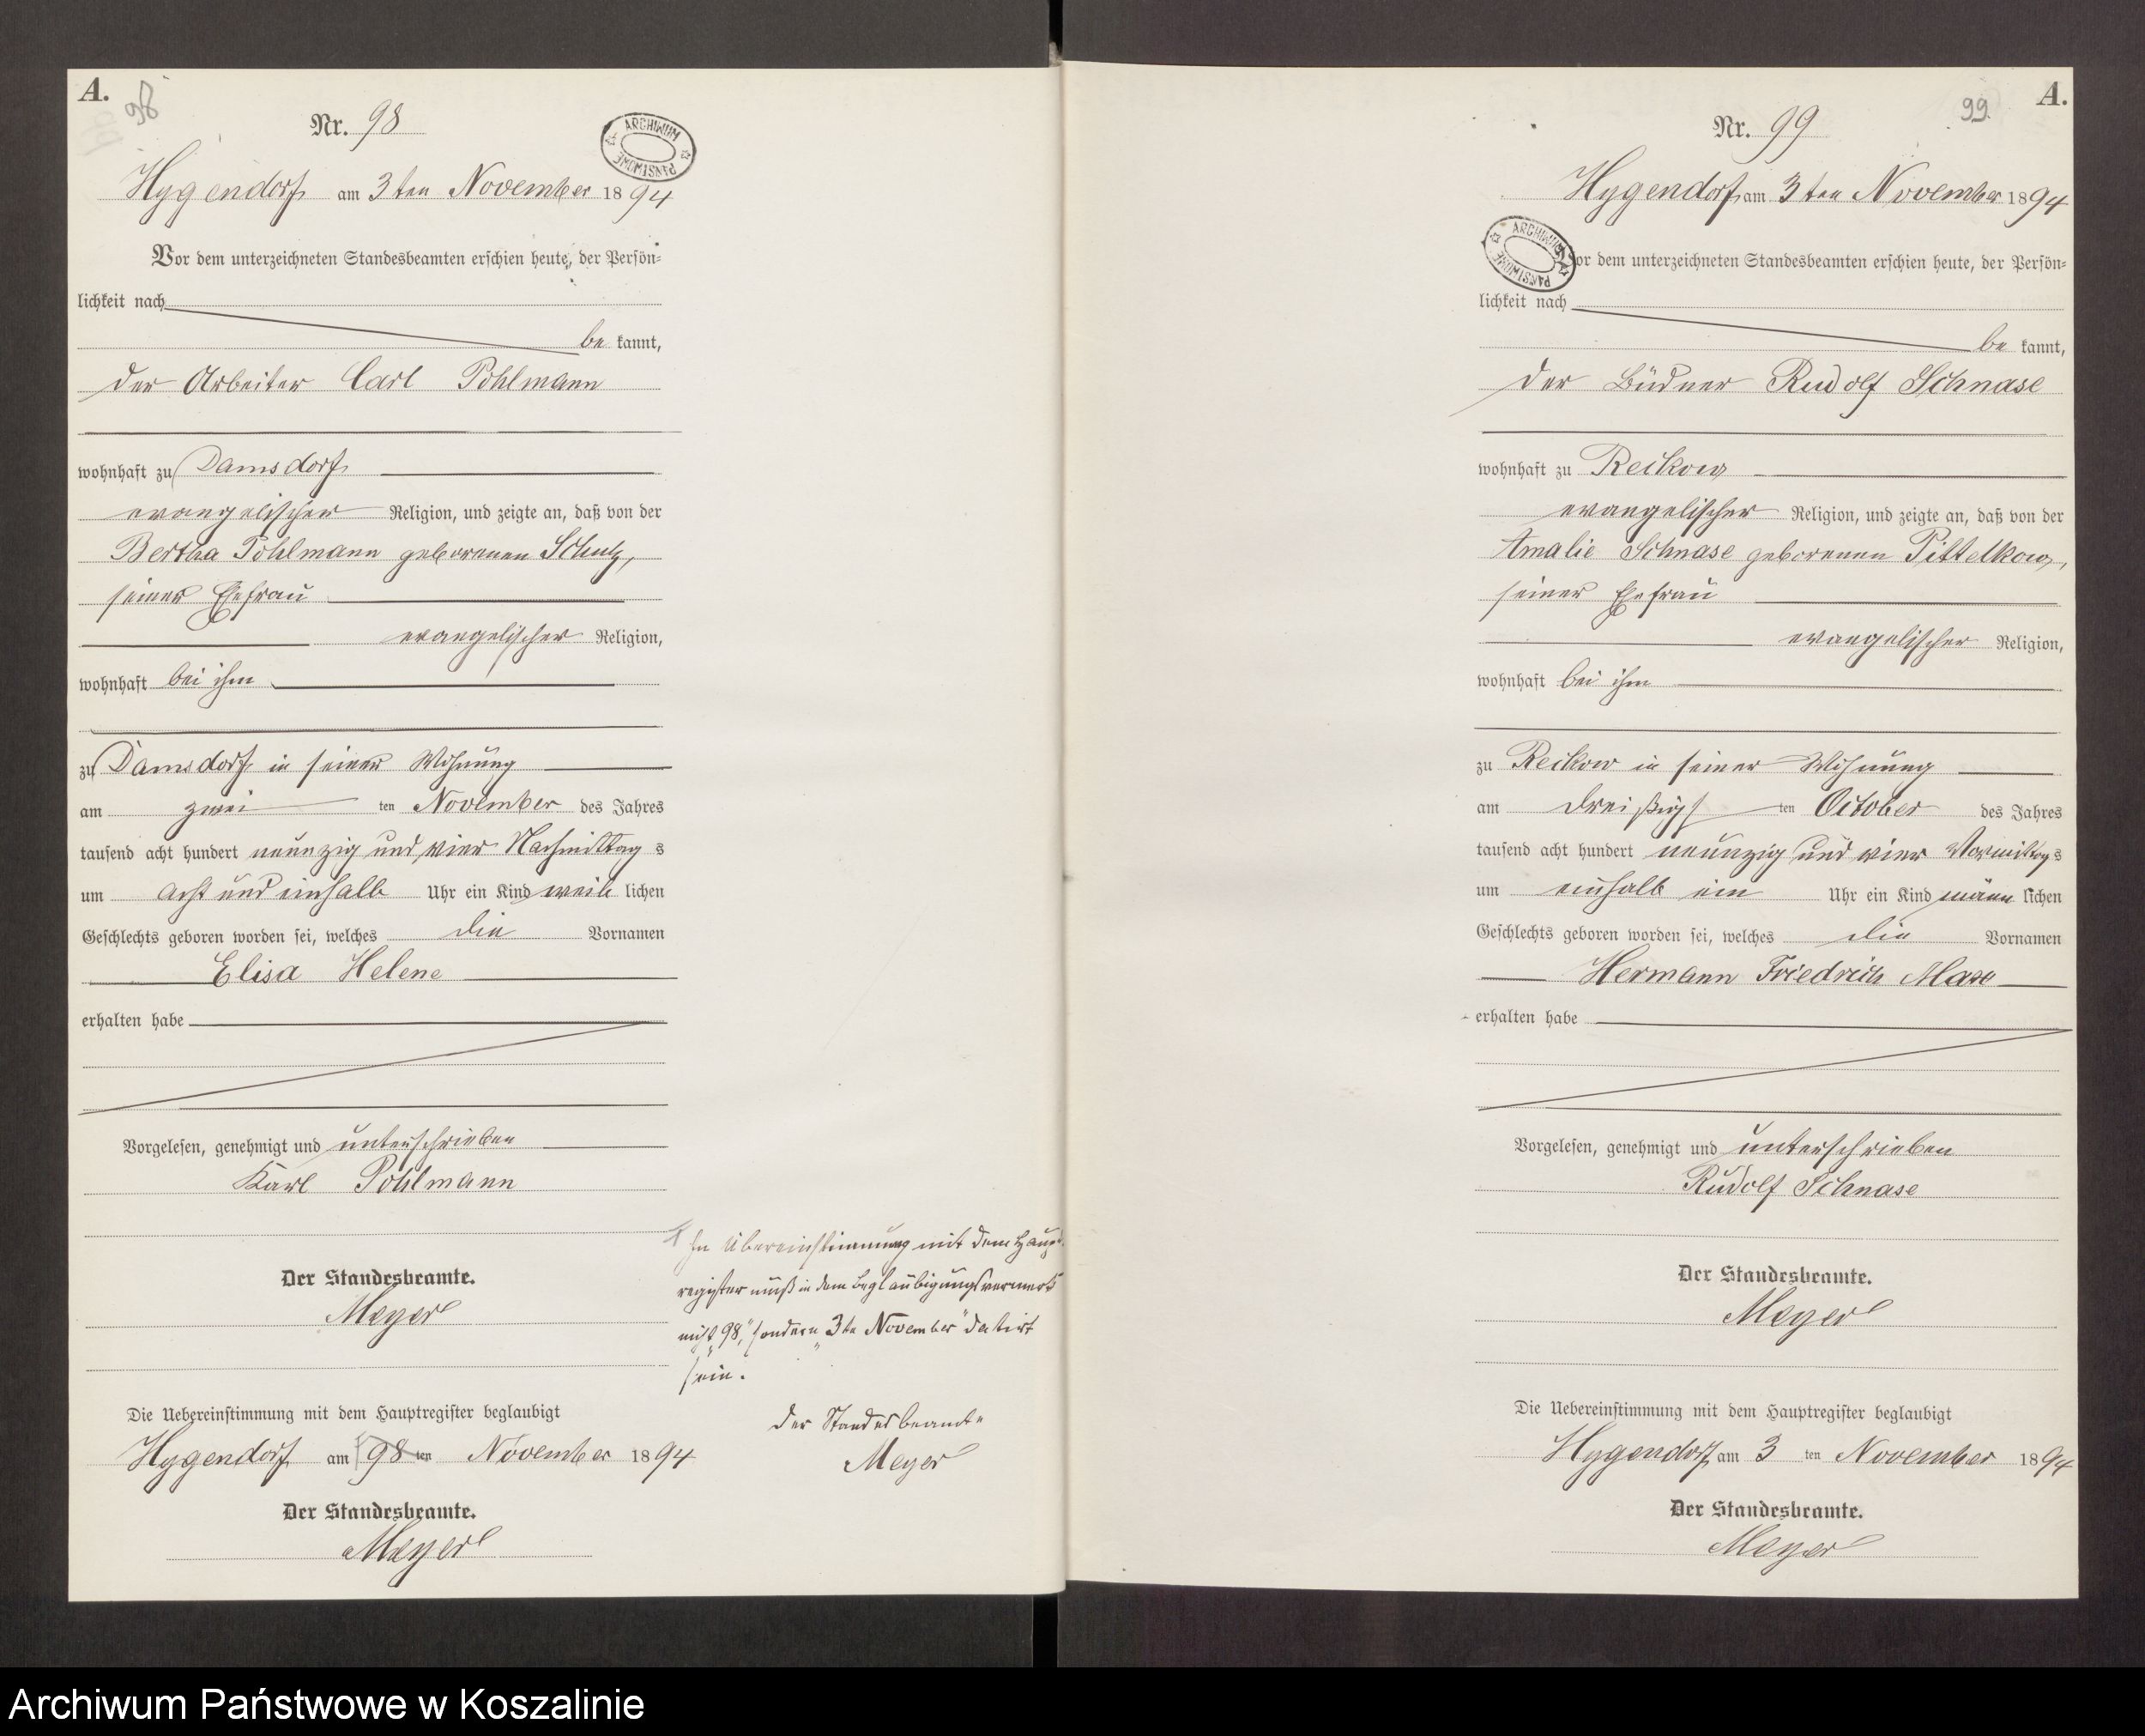 A.
98
Nr. 98
ARCHIWUM PAŃSTWOWE
Hygendorf am 3 ten November 1894
Vor dem unterzeichneten Standesbeamten erschien heute, der Persön-
lichkeit nach
be kannt,
der Arbeiter Carl Pohlmann
wohnhaft zu Damsdorf
evangelischer Religion, und zeigte an, daß von der
Bertha Pohlmann geborenen Schulz,
seiner Ehefrau
evangelischer Religion,
wohnhaft bei ihm
zu Damsdorf in seiner Wohnung
am zwei ten November des Jahres
tausend acht hundert neunzig und vier Nachmittag s
um acht und einhalb Uhr ein Kind weib lichen
Geschlechts geboren worden sei, welches die Vornamen
Elisa Helene
erhalten habe
Vorgelesen, genehmigt und unterschrieben
Karl Pohlmann
Der Standesbeamte.
Meyer
Die Uebereinstimmung mit dem Hauptregister beglaubigt
Hygendorf am 98 ten November 1894
Der Standesbeamte.
Meyer
In Übereinstimmung mit dem Haupt-
register muß in dem Beglaubigungsvermerk
nicht „98", sondern „3te November" datirt
sein.
Der Standesbeamte
Meyer
A.
99.
Nr. 99
Hygendorf am 3 ten November 1894
ARCHIWUM PAŃSTWOWE
Vor dem unterzeichneten Standesbeamten erschien heute, der Persön-
lichkeit nach
be kannt,
der Büdner Rudolf Schnase
wohnhaft zu Reckow
evangelischer Religion, und zeigte an, daß von der
Amalie Schnase geborenen Pittelkow,
seiner Ehefrau
evangelischer Religion,
wohnhaft bei ihm
zu Reckow in seiner Wohnung
am dreißigs ten October des Jahres
tausend acht hundert neunzig und vier Vormittag s
um einhalb ein Uhr ein Kind männ lichen
Geschlechts geboren worden sei, welches die Vornamen
Hermann Friedrich Max
erhalten habe
Vorgelesen, genehmigt und unterschrieben
Rudolf Schnase
Der Standesbeamte.
Meyer
Die Uebereinstimmung mit dem Hauptregister beglaubigt
Hygendorf am 3 ten November 1894
Der Standesbeamte.
Meyer
Archiwum Państwowe w Koszalinie